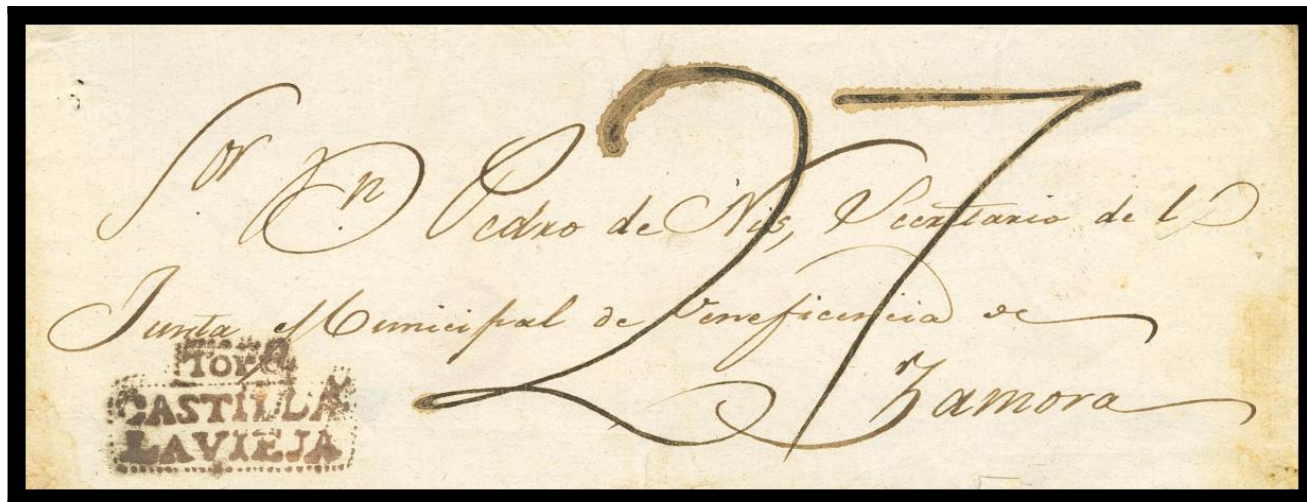 27
Sor Dn Pedro de Nis, Secretario de la
Junta Municipal de Veneficencia de
Zamora
TORO
CASTILLA
LA VIEJA